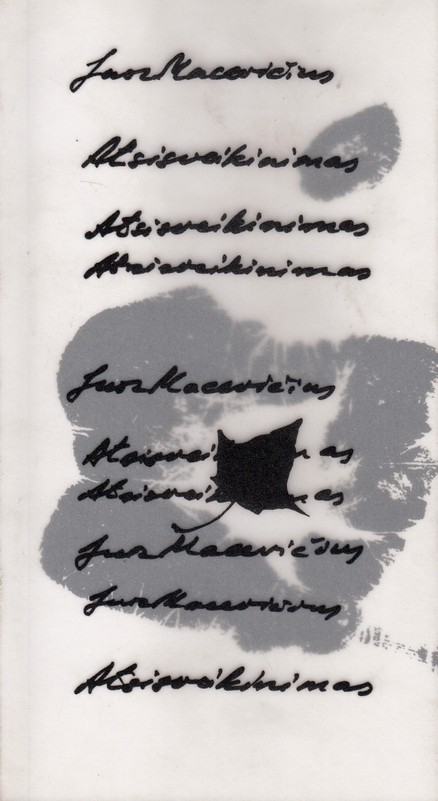 Juoz Macevičius
Atsisveikinimas
Atsisveikinimas
Atsisveikinimas
Juoz Macevičius
Atsisvei as
Atsisveik as
Juoz Macevičius
Juoz Macevičius
Atsisveikinimas